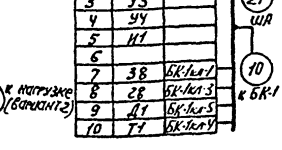 3 У3
4 У4
5 И1
6
7 3В БК-1кл-1
8 2В БК-1кл-3
9 Д1 БК-1кл-5
10 Т1 БК-1кл-4
21
ША
10
к БК-1
к нагрузке
(вариант 2)